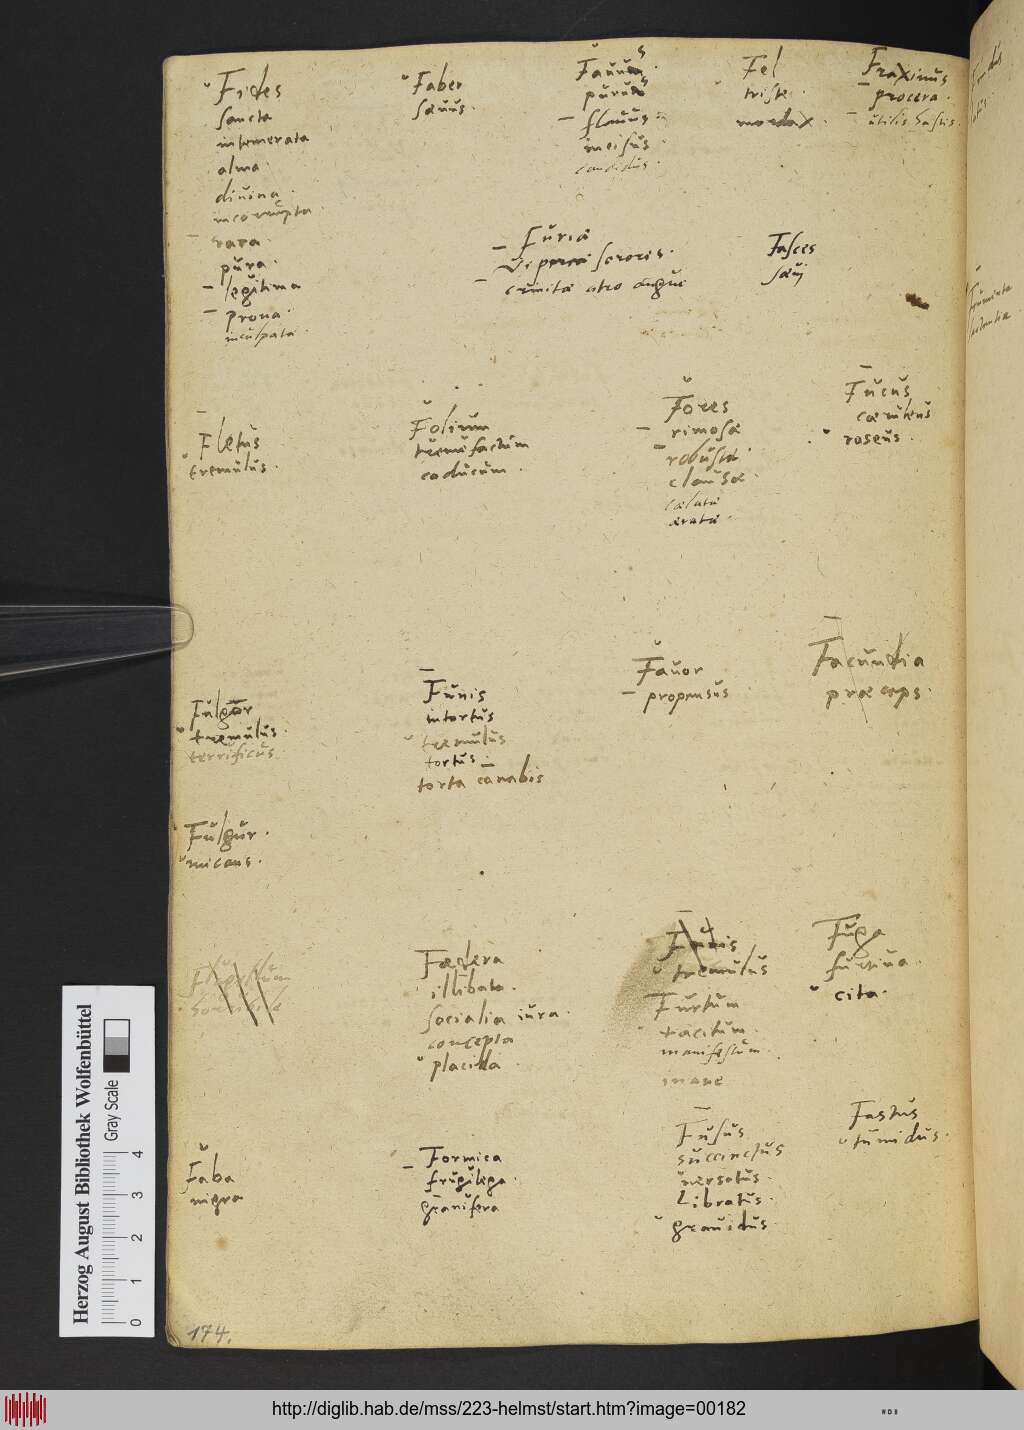 Fides
sancta
intemerata
alma
diuina.
incorrupta.
rara.
pura.
legitima
prona.
inculpata.
Faber
sæuus.
Fauus
purus
flauus.
candidus.
Fel
triste.
mordax.
Fraxinus
procera.
utilis hastis.
Furiæ
Vipereæ sorores.
crinitæ atro angue
Fasces
sæui
Fletus
tremulus.
Folium
tremefactum
caducum.
Fores
rimosæ
robustæ.
clausæ.
cælatæ
æratæ.
Fucus
cæruleus
roseus.
Fulgor
tremulus.
terrificus
Funis
intortus
tremulus
tortus
torta canabis
Fauor
propensus
Facundia
præceps.
Fulgur.
micans.
Fœdera
illibata.
socialia iura.
concepta
placida
Funis
tremulus
Furtum
tacitum.
manifestum.
inane
Fuga
furtiua.
cita.
Faba
nigra
Formica
frugilega.
granifera
Fusus
succinctus
uersatus.
Libratus.
grauidus.
Fastus
tumidus.
174.
Herzog August Bibliothek Wolfenbüttel
Gray Scale
0 1 2 3 4
http://diglib.hab.de/mss/223-helmst/start.htm?image=00182